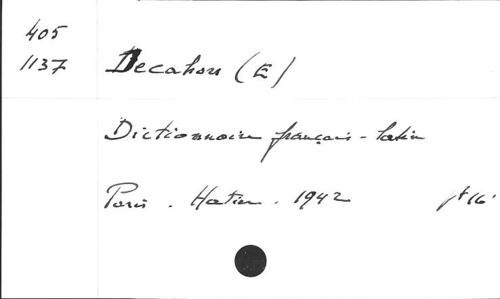 405
1137
Decahors (E)
Dictionnaire français-latin
Paris. Hatier. 1942 pt 16°